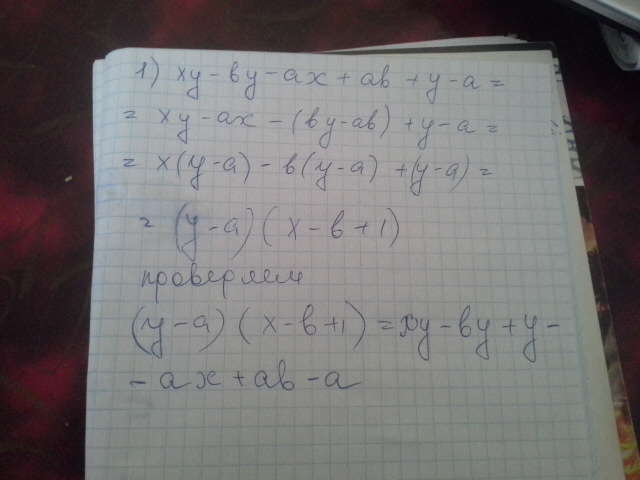 1) xy - by - ax + ab + y - a =
= xy - ax - (by - ab) + y - a =
= x(y - a) - b(y - a) + (y - a) =
= (y - a)(x - b + 1)
проверяем
(y - a)(x - b + 1) = xy - by + y -
- ax + ab - a